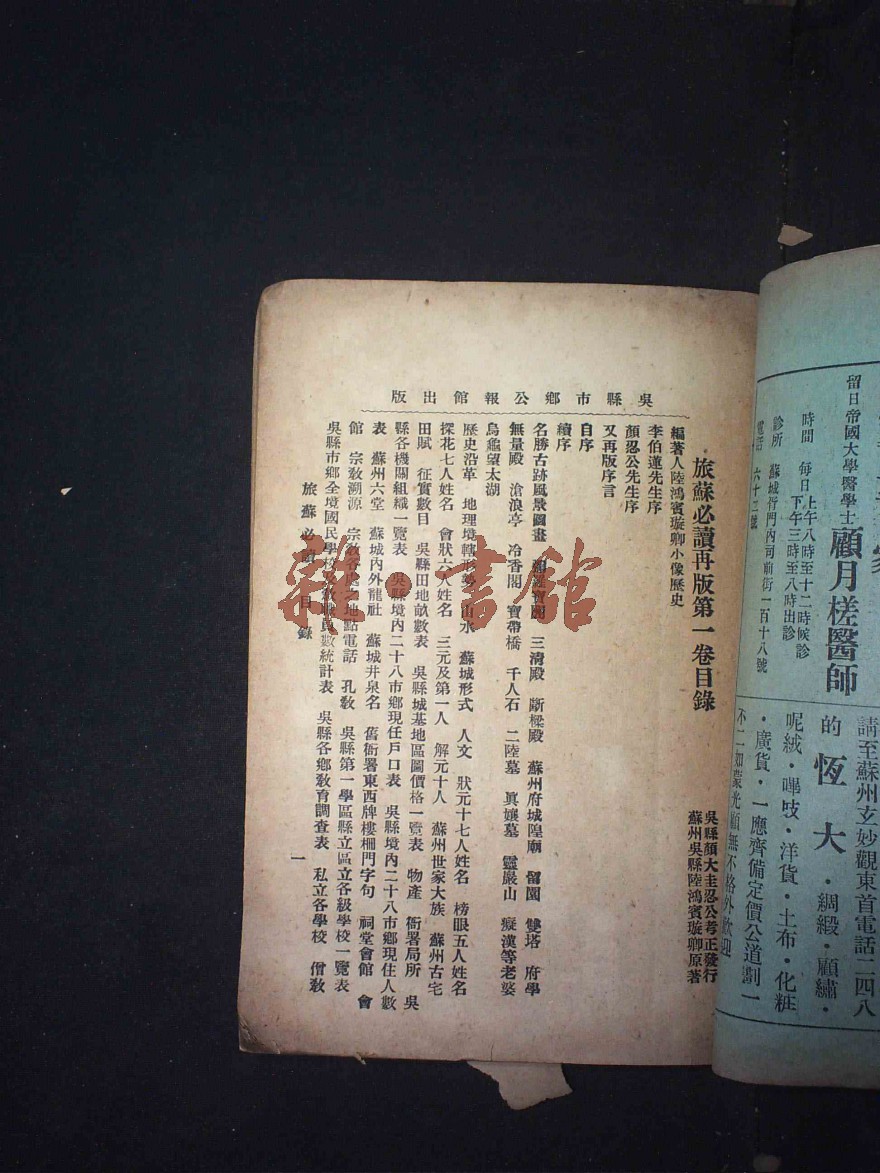 吳縣市鄉公報館出版
旅蘇必讀再版第一卷目錄
吳縣顏大圭忍公考正發行
蘇州吳縣陸鴻賓璇卿原著
編著人陸鴻賓璇卿小像歷史
李伯蓮先生序
顏忍公先生序
又再版序言
自序
續序
名勝古跡風景圖畫 三清殿 斷樑殿 蘇州府城隍廟 留園 雙塔 府學
無量殿 滄浪亭 冷香閣 寶帶橋 千人石 二陸墓 眞孃墓 靈巖山 癡漢等老婆
烏龜望太湖
歷史沿革 地理境轄形勢 山水 蘇城形式 人文 狀元十七人姓名 榜眼五人姓名
探花七人姓名 會狀六人姓名 三元及第一人 解元十人 蘇州世家大族 蘇州古宅
田賦 征實數目 吳縣田地畝數表 吳縣城基地區圖價格一覽表 物產 衙署局所 吳
縣各機關組織一覽表 吳縣境內二十八市鄉現任戶口表 吳縣境內二十八市鄉現住人數
表 蘇州六堂 蘇城內外龍社 蘇城井泉名 舊衙署東西牌樓柵門字句 祠堂會館 會
館 宗敎溯源 宗敎各處之地點電話 孔敎 吳縣第一學區縣立區立各級學校一覽表
吳縣市鄉全境國民學校及敎職員數統計表 吳縣各鄉敎育調查表 私立各學校 僧敎
旅蘇必讀 目錄 一
留日帝國大學醫學士 顧月槎醫師
時間 每日 上午八時至十二時候診
下午三時至八時出診
診所 蘇城衙門內司前街一百十八號
電話 六十三號
請至蘇州玄妙觀東首電話二四八
的 恆大 ·綢緞·顧繡·
呢絨·嗶吱·洋貨·土布·化粧
·廣貨·一應齊備定價公道劃一
不二如蒙光顧無不格外歡迎
雜·書館